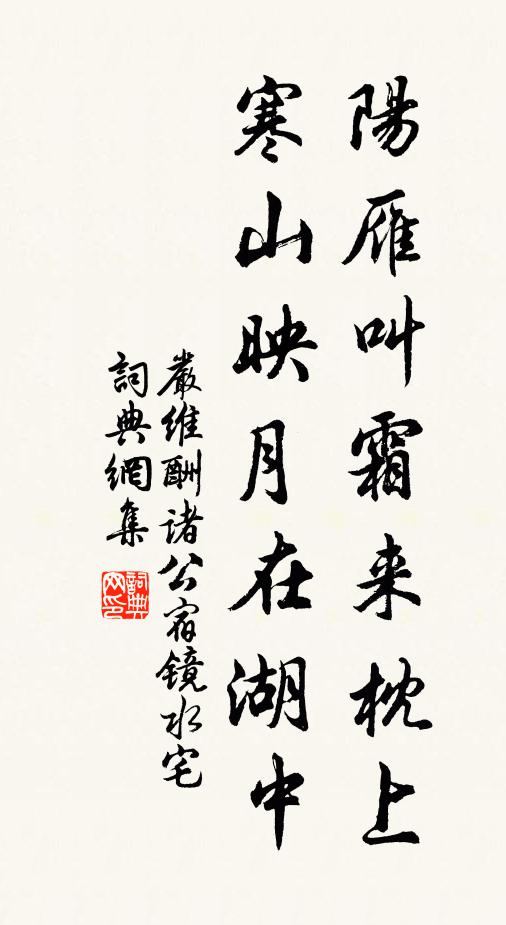 陽雁叫霜来枕上
寒山映月在湖中
嚴維酬诸公宿鏡水宅
詞典網集
詞典网印